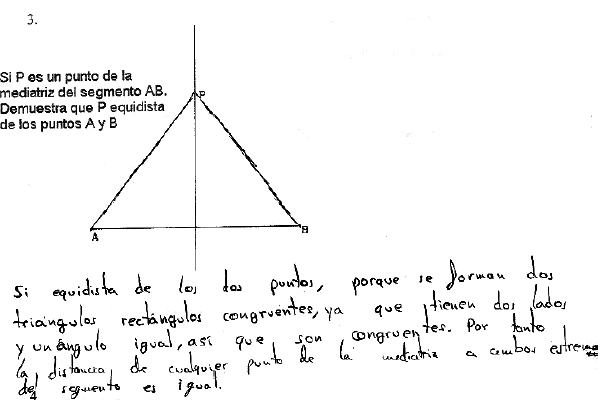 3.
Si P es un punto de la
mediatriz del segmento AB.
Demuestra que P equidista
de los puntos A y B
P
A
B
Si equidista de los dos puntos, porque se forman dos
triángulos rectángulos congruentes, ya que tienen dos lados
y un ángulo igual, así que son congruentes. Por tanto
la distancia de cualquier punto de la mediatriz a ambos extremos
del segmento es igual.